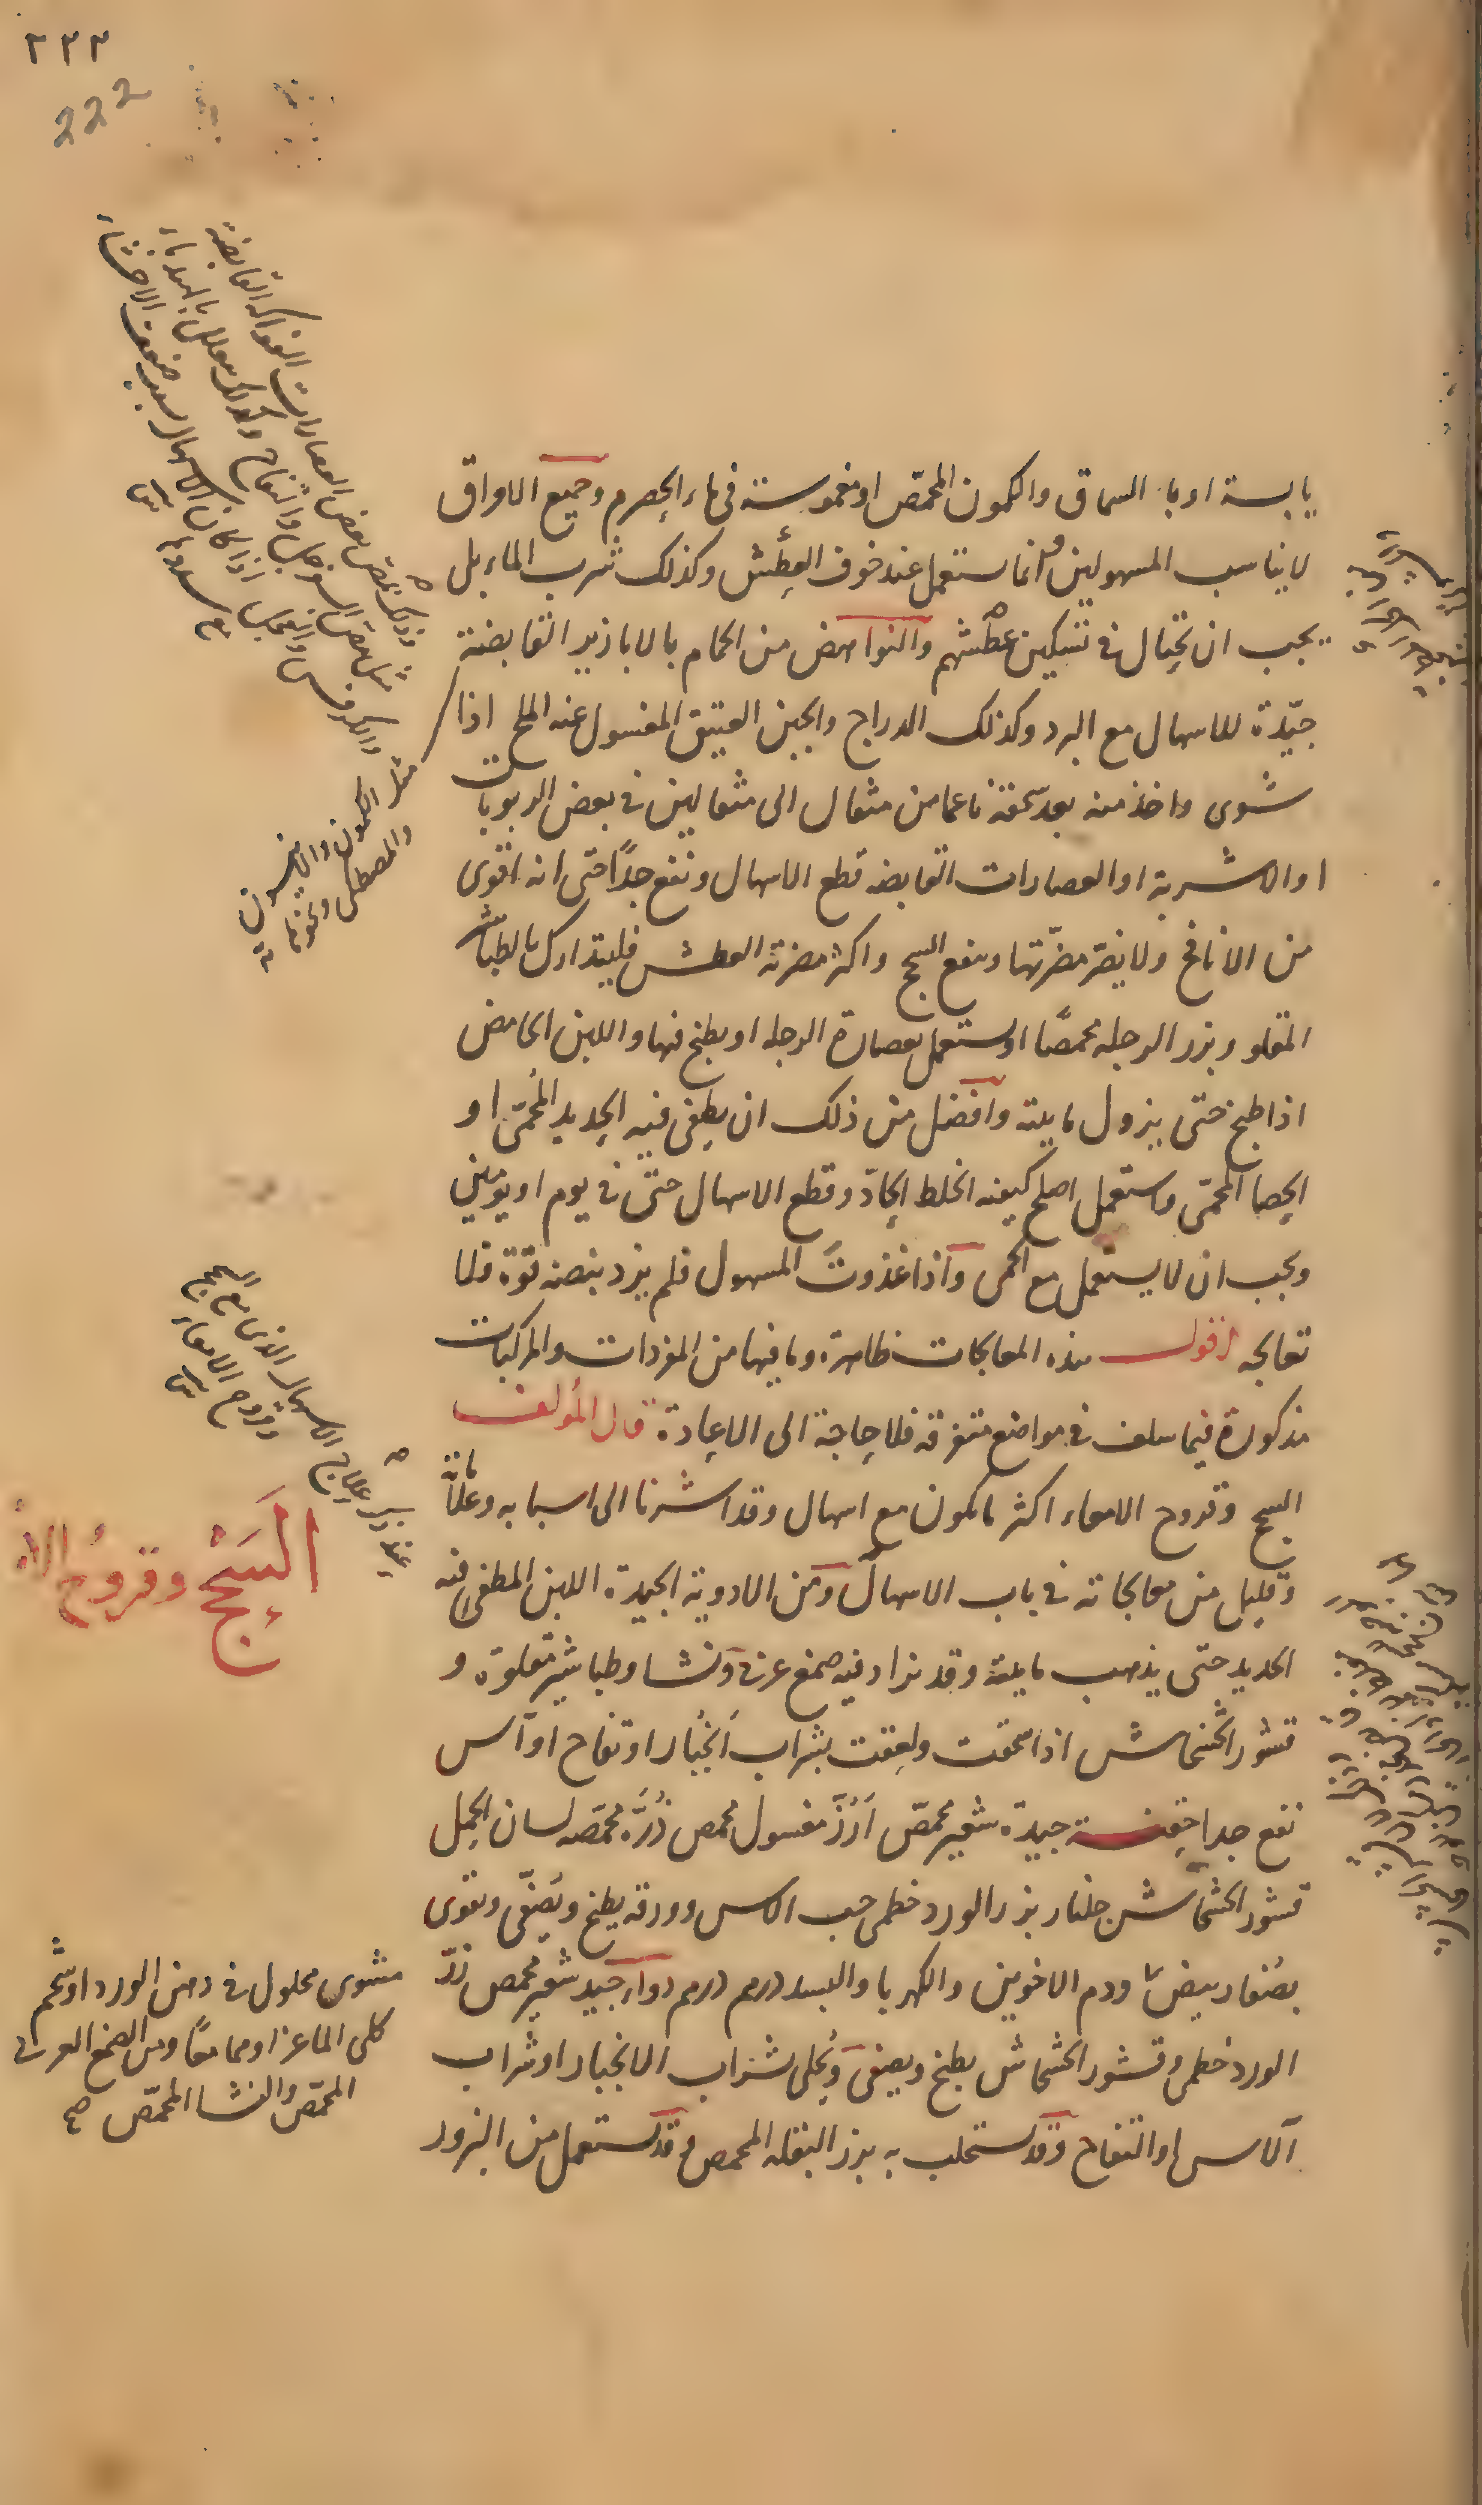 ٢٢٢
222
يابسة او بماء السماق والكمون المحمّص او مغموسة فى ماء الحصرم وجميع الامراق
لا يناسب المسهولين وانما تستعمل عند خوف العطش وكذلك شرب الماء بل
يجب ان يحتال فى تسكين عطشهم والنواهض من الحمام بالابازير القابضة
جيّدة للاسهال مع البرد وكذلك الدراج والجبن العتيق المغسول عنه الملح اذا
شوى واخذ منه بعد سحقه ناعما من مثقال الى مثقالين فى بعض الربوبات
او الاشربة او العصارات القابضه قطع الاسهال ونفع جدًا حتى انه اقوى
من الانافح ولا يضرّ مضرّتها وينفع السحج واكثر مضرته العطش فليتدارك بالطباشير
المقلو وبزر الرجله محمصًا او يستعمل بعصارة الرجله او يطبخ فيها واللبن الحامض
اذا طبخ حتى يزول مايته وافضل من ذلك ان يطفى فيه الحديد المُحمّى او
الحصا المحمّى واستعمل اصلح كيفيه الخلط الحادّ وقطع الاسهال حتى فى يوم او يومين
ويجب ان لا يستعمل مع الحمى واذا غذوتَ المسهول فلم يزد نبضه قوة فلا
تعالجه اقول هذه المعالجات ظاهرة وما فيها من المفردات والمركبات
مذكورة فيما سلف فى مواضع متفرقه فلا حاجة الى الاعادة قال المؤلف
السحج وقروح الامعاء اكثر ما يكون مع اسهال وقد اشرنا الى اسبابه وعلاماته
وقليل من معالجاته فى باب الاسهال ومن الادوية الجيدة اللبن المطفى فيه
الحديد حتى يذهب مايته وقد يزاد فيه صمغ عربى ونشا وطباشير مقلوة و
قشور الخشخاش اذا سحقت ولعقت بشراب اَنجُبار او تفاح او آس
نفع جدا حقنة جيدة شعير محمصّ اَرُزّ مغسول محمص ذُرَة محمّصه لسان الحمل
قشور الخشخاش جلنار بزر الورد خطمى حب الاس وورقه يطبخ ويُصَفّى ويقوى
بصُفار بيض ودم الاخوين والكهربا والبسد درهم درهم دواء جيد شعير محمص زرّ
الورد خطمى وقشور الخشخاش يطبخ ويصفى ويُحلى بشراب الانجبار او شراب
الآس او التفاح وقد يستحلب به بزر البقله المحمص وقد يستعمل من البزور
وذلك بمصّ بعض العصارات الفواكه القابضة
مثل مصّ السفرجل والتفاح
مثل الكمون والانيسون
والمصطكى ونحوها
عند ذكر علاج الاسهال الذى مع السحج
وقروح الامعاء
السَحْج وقروُح الامْ
مشوى محلول فى دهن الورد او شحم
كلى الماعز او هما معًا ومن الصمغ العربى
المحمّص والنشا المحمّص صح